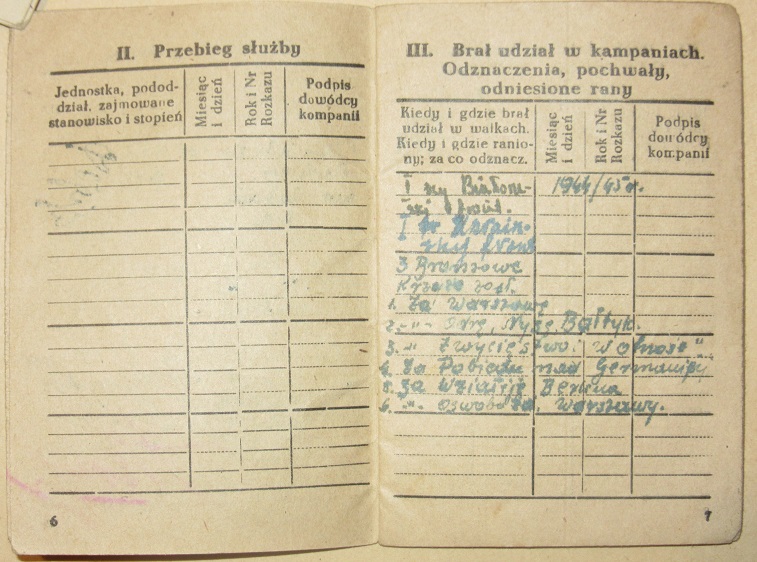 II. Przebieg służby
Jednostka, pododdział, zajmowane
stanowisko i stopień
Miesiąc
i dzień
Rok i Nr
Rozkazu
Podpis
dowódcy
kompanii
6
III. Brał udział w kampaniach.
Odznaczenia, pochwały,
odniesione rany
Kiedy i gdzie brał
udział w walkach.
Kiedy i gdzie ranio-
ny; za co odznacz.
Miesiąc
i dzień
Rok i Nr
Rozkazu
Podpis
dowódcy
kompanii
I szy Białoru- 1944/45 r.
skij front.
I Ukrain-
skij front
3 Bronzowe
Krzyże zasł.
1. Za Warszawę
2. -"- Odrę, Nysę, Bałtyk.
3. -"- Zwycięstwo i wolność".
4. Za Pobiedu nad Germanijej
5. Za wziatije Berlina
6. -"- Warszawy.
7